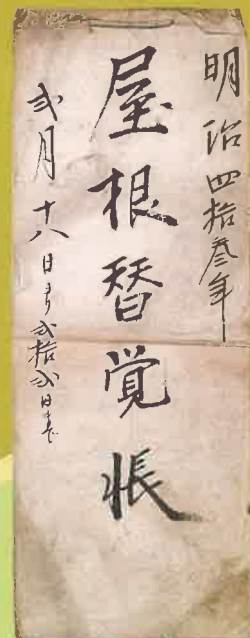 明治四拾叁年
屋根替覚帳
弐月十八日ヨリ弐拾弐日まで